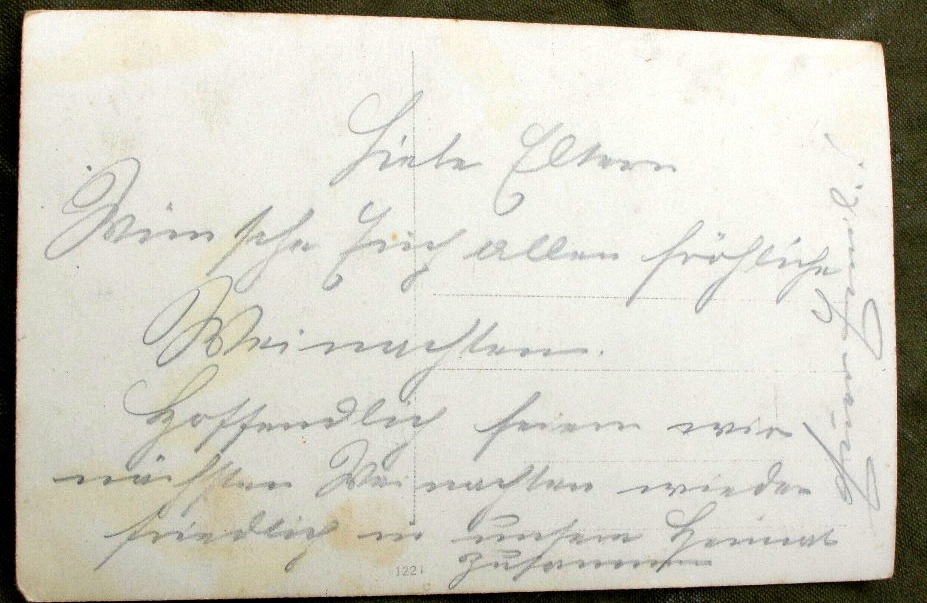 Liebe Eltern
Wünsche Euch allen fröhliche
Weinachten.
Hoffendlich feiern wir
nächsten Weinachten wieder
friedlich in unsern Heimat
zusammen
1221